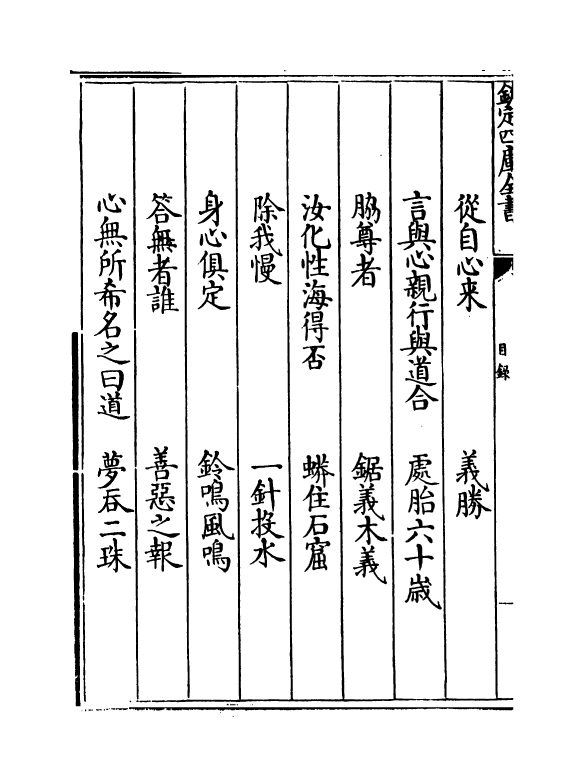 欽定四庫全書
目錄
從自心来 義勝
言與心親行與道合 處胎六十歳
脇尊者 鋸義木義
汝化性海得否 蟒住石窟
除我慢 一針投水
身心俱定 鈴鳴風鳴
答無者誰 善惡之報
心無所希名之曰道 夢吞二珠